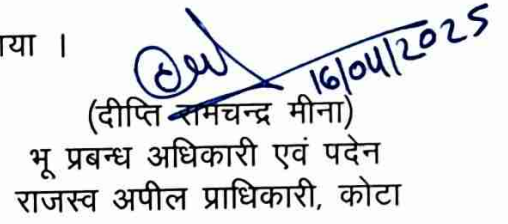 गया ।
16/04/2025
(दीप्ति रामचन्द्र मीना)
भू प्रबन्ध अधिकारी एवं पदेन
राजस्व अपील प्राधिकारी, कोटा